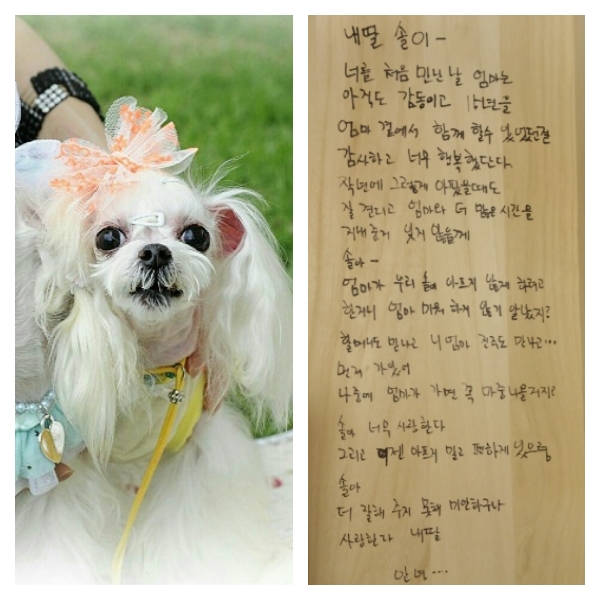 내딸 솔이 -
너를 처음 만난날 엄마는
아직도 감동이고 15년을
엄마 곁에서 함께 할수 있었던걸
감사하고 너무 행복했단다.
작년에 그렇게 아팠을때도
잘 견디고 엄마와 더 많은 시간을
지내준거 잊지 않을께
솔아 -
엄마가 우리 솔이 아프지 않게 하려고
한거니 엄마 미워 하지 않기 알았지?
할머니도 만나고 니 엄마 친구도 만나고...
먼저 가있어
나중에 엄마가 가면 꼭 마중나올거지?
솔아 너무 사랑한다
그리고 이젠 아프지 말고 편하게 있으렴
솔아
더 잘해 주지 못해 미안하구나
사랑한다 내딸
안녕...